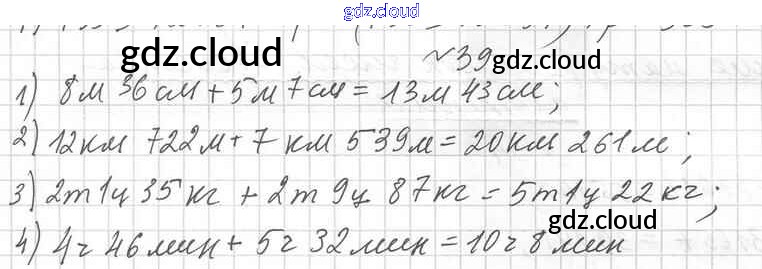 gdz.cloud
gdz.cloud
№39 gdz.cloud
1) 8м 36см + 5м 7см = 13м 43см;
2) 12км 722м + 7км 539м = 20км 261м;
3) 2т 1ц 35кг + 2т 9ц 87кг = 5т 1ц 22кг;
gdz.cloud
4) 4ч 46мин + 5ч 32мин = 10ч 8мин